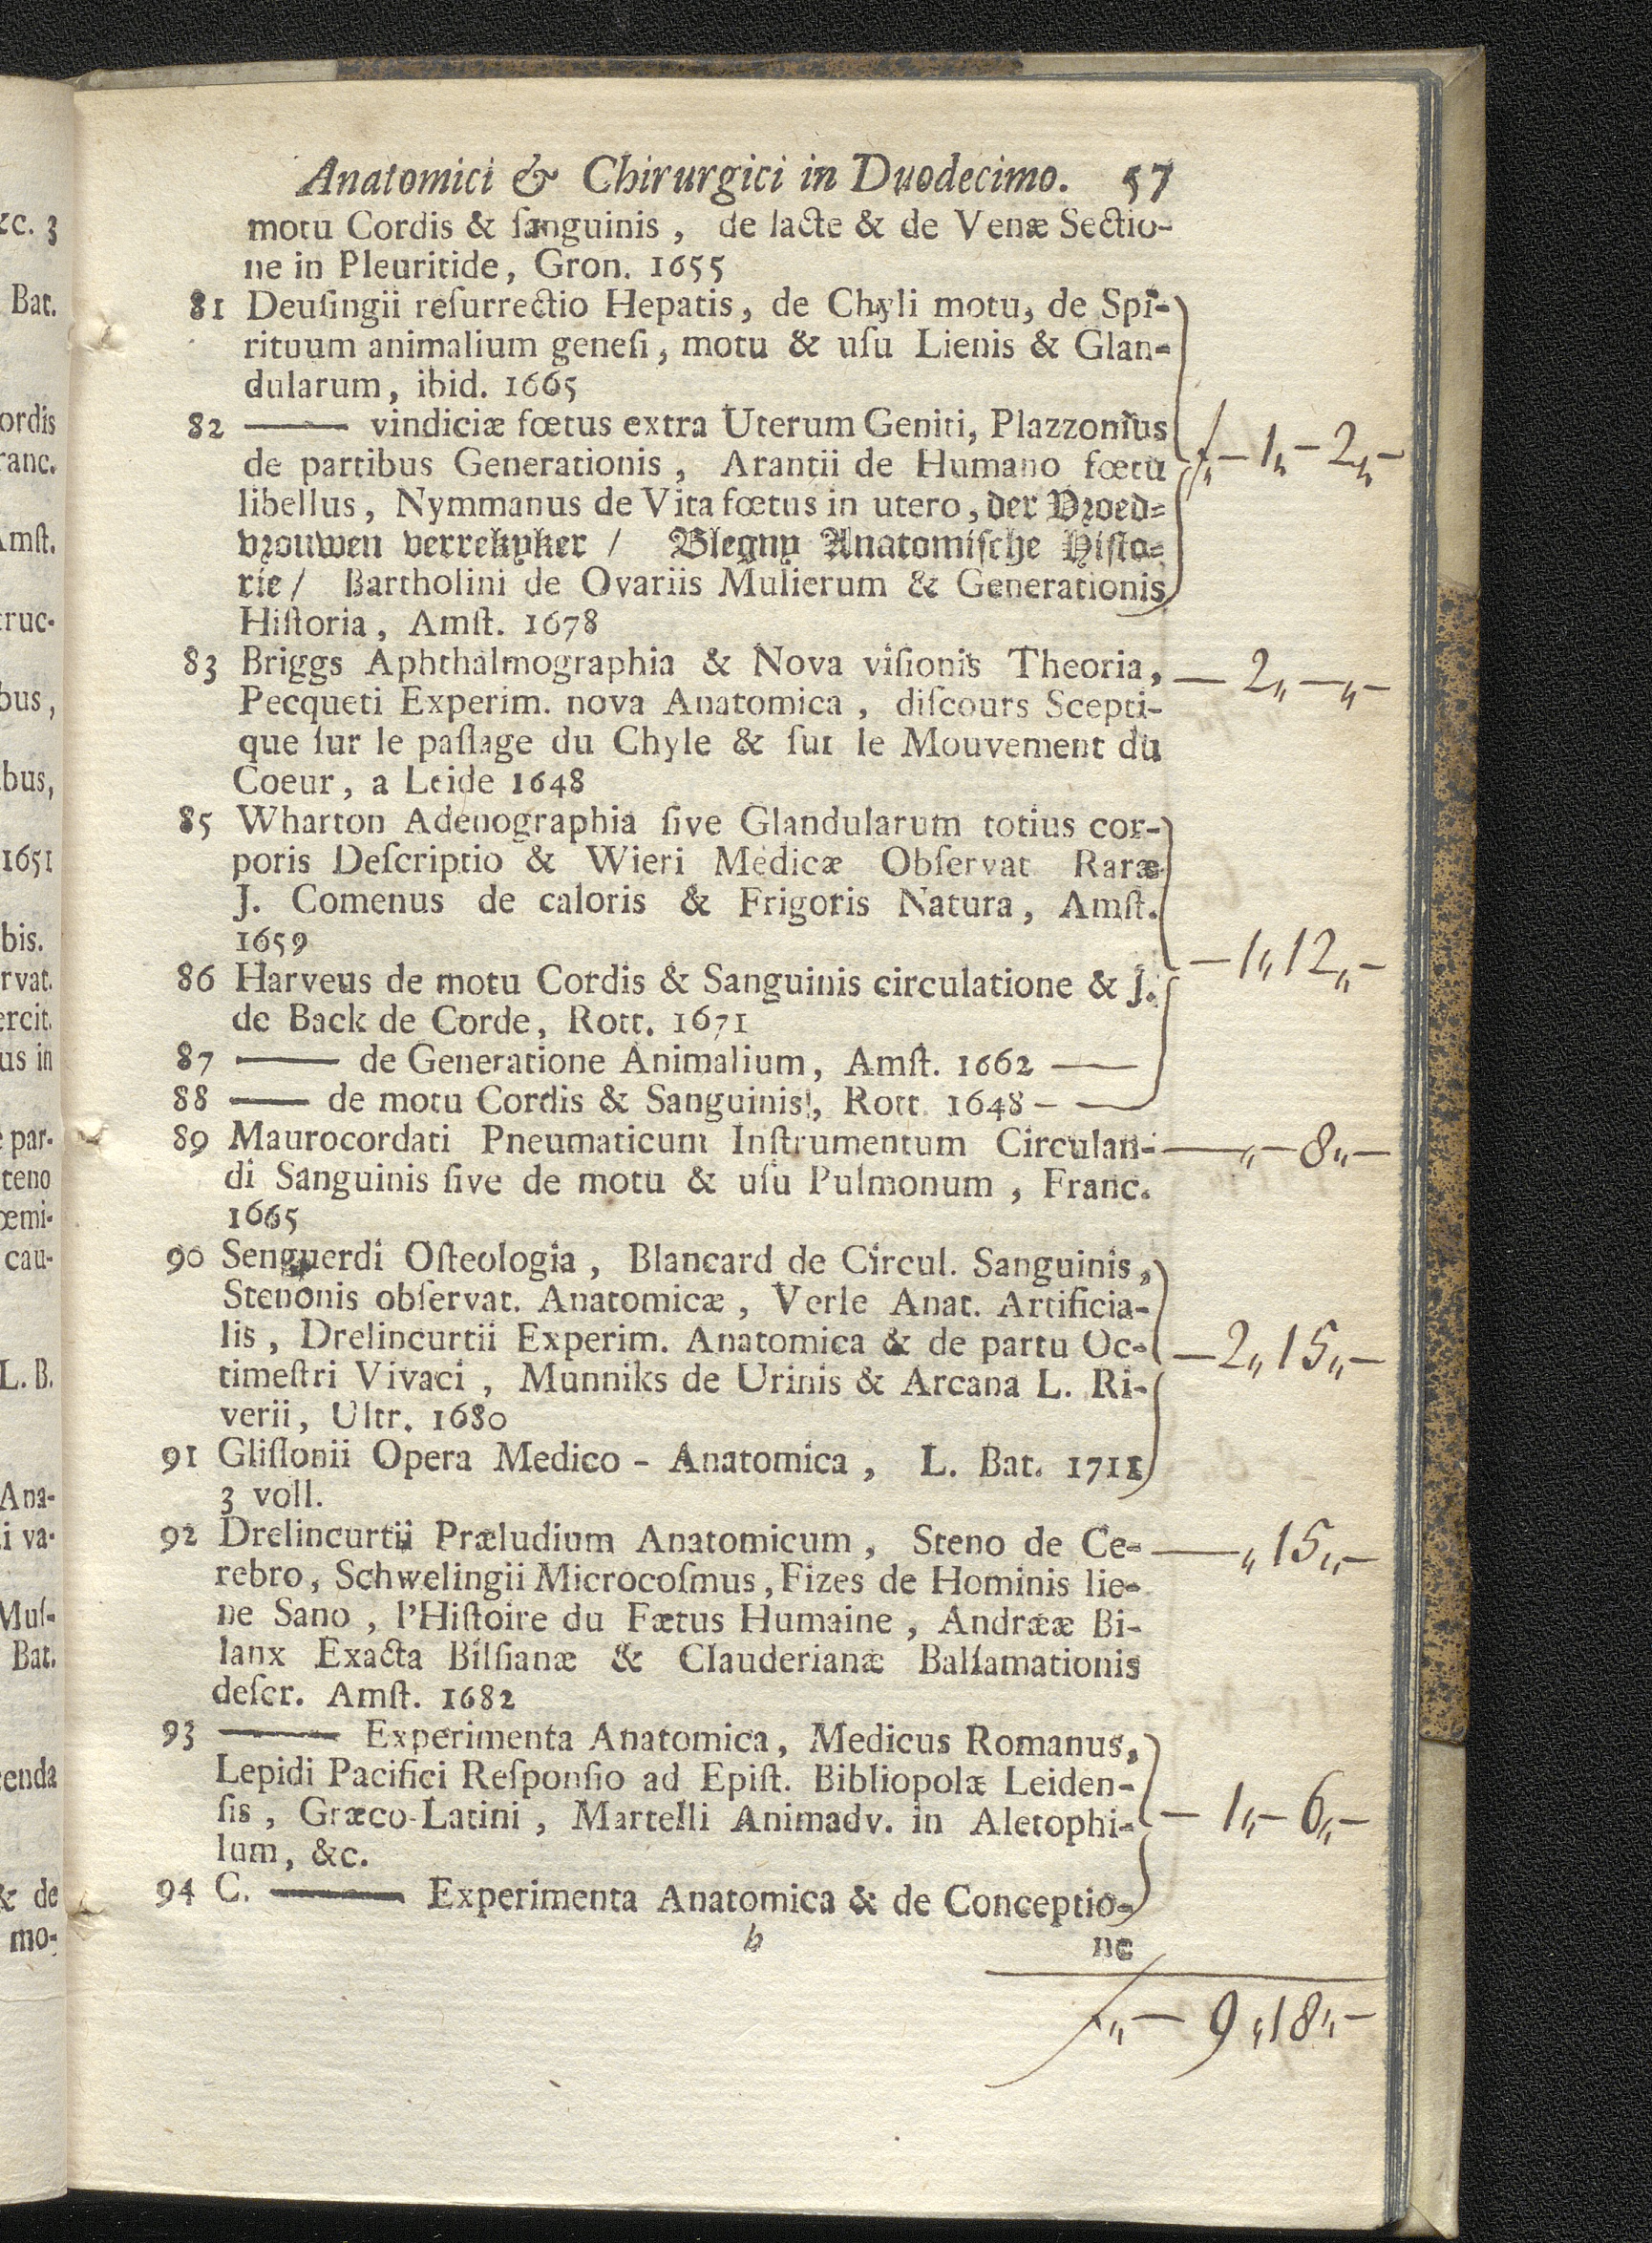 Anatomici & Chirurgici in Duodecimo. 57
motu Cordis & ſanguinis, de lacte & de Venæ Sectio-
ne in Pleuritide, Gron. 1655
81 Deuſingii reſurrectio Hepatis, de Chyli motu, de Spi-
rituum animalium geneſi, motu & uſu Lienis & Glan-
dularum, ibid. 1665
82 —— vindiciæ fœtus extra Uterum Geniti, Plazzonius
de partibus Generationis, Arantii de Humano fœtu
ƒ„—1„—2„—
libellus, Nymmanus de Vita fœtus in utero, der Vroed=
vrouwen verrekyker / Blegny Anatomiſche Hiſto=
rie / Bartholini de Ovariis Mulierum & Generationis
Hiſtoria, Amſt. 1678
83 Briggs Aphthalmographia & Nova viſionis Theoria, — 2„—„—
Pecqueti Experim. nova Anatomica, diſcours Scepti-
que ſur le paſſage du Chyle & ſur le Mouvement du
Coeur, a Leide 1648
85 Wharton Adenographia ſive Glandularum totius cor-
poris Deſcriptio & Wieri Medicæ Obſervat Raræ
J. Comenus de caloris & Frigoris Natura, Amſt.
1659
—1„12„—
86 Harveus de motu Cordis & Sanguinis circulatione & J.
de Back de Corde, Rott. 1671
87 —— de Generatione Animalium, Amſt. 1662 ——
88 —— de motu Cordis & Sanguinis!, Rott. 1648 – —
89 Maurocordati Pneumaticum Inſtrumentum Circulan- ——„—8„—
di Sanguinis ſive de motu & uſu Pulmonum, Franc.
1665
90 Senguerdi Oſteologia, Blancard de Circul. Sanguinis,
Stenonis obſervat. Anatomicæ, Verle Anat. Artificia-
lis, Drelincurtii Experim. Anatomica & de partu Oc- —2„15„—
timeſtri Vivaci, Munniks de Urinis & Arcana L. Ri-
verii, Ultr. 1680
91 Gliſſonii Opera Medico - Anatomica, L. Bat. 1711
3 voll.
92 Drelincurtii Præludium Anatomicum, Steno de Ce- ——„15„—
rebro, Schwelingii Microcoſmus, Fizes de Hominis lie-
ne Sano, l'Hiſtoire du Fætus Humaine, Andrææ Bi-
lanx Exacta Bilſianæ & Clauderianæ Balſamationis
deſcr. Amſt. 1682
93 —— Experimenta Anatomica, Medicus Romanus,
Lepidi Pacifici Reſponſio ad Epiſt. Bibliopolæ Leiden-
ſis, Græco-Latini, Martelli Animadv. in Aletophi- — 1„—6„—
lum, &c.
94 C. —— Experimenta Anatomica & de Conceptio-
b ne
ƒ„— 9„18„—